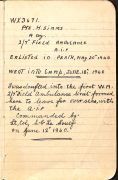 WX3671.
Pte. H. Sims
A Coy.
2/7 Field Ambulance
A.I.F
Enlisted in Perth, May 20th 1940
Went into Camp, June 12th 1940
Transferred into the first W.A.
2/7 Field Ambulance Unit formed
here to leave for overseas with
the A.I.F
Commanded by
Lt. Col.
on June 12th 1940.